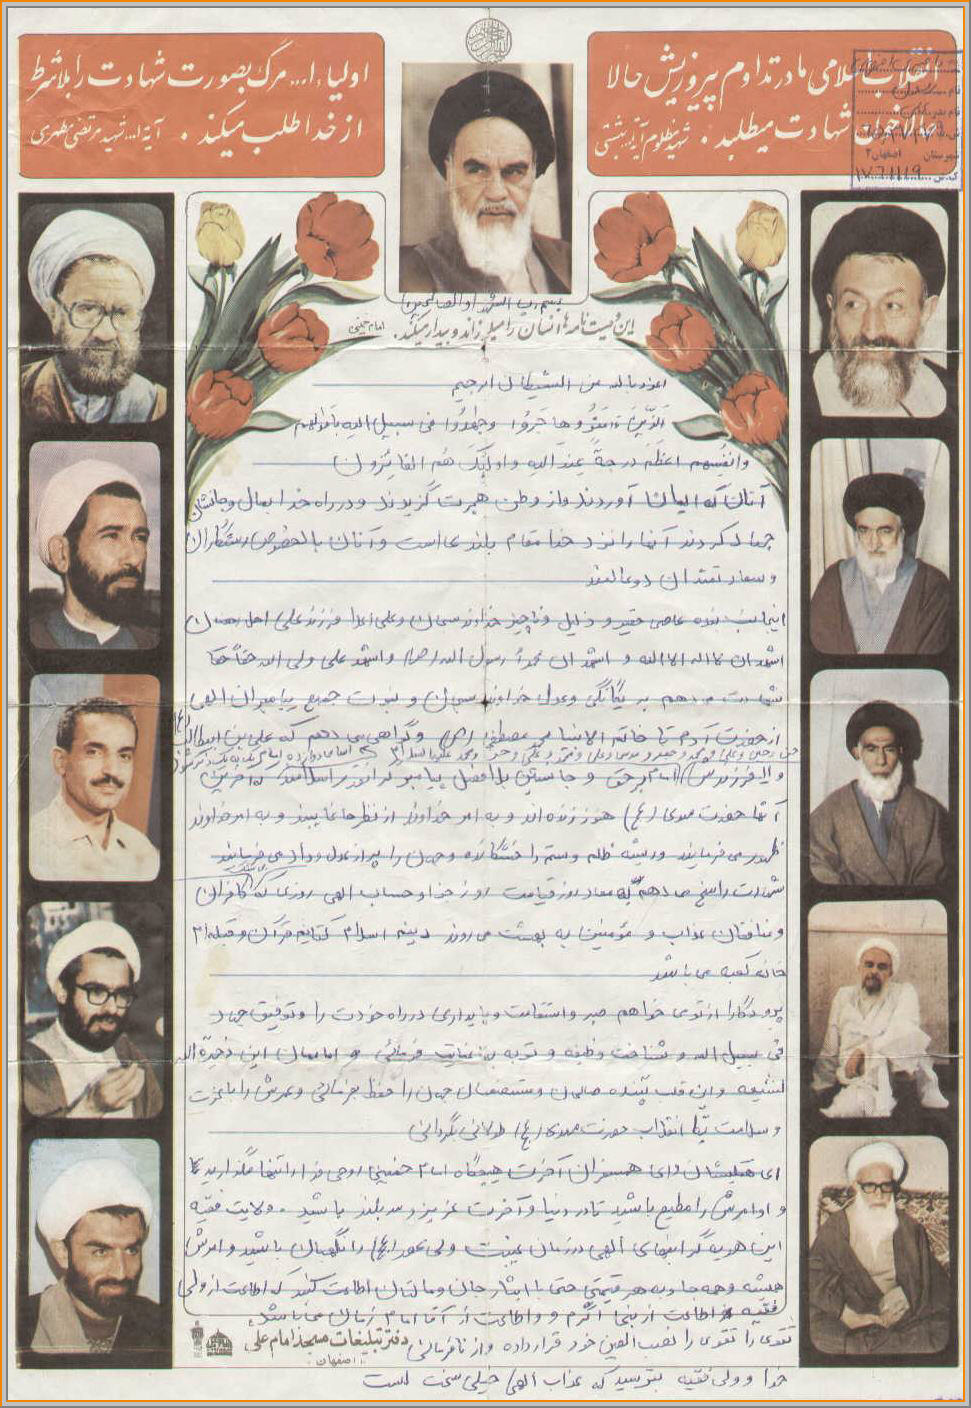 اولیاء ا... مرگ بصورت شهادت را بلاشرط
از خدا طلب میکند . آیة ا... شهید مرتضی مطهری
اسلامی ما در تداوم پیروزیش حالا
شهادت میطلبد . شهید مظلوم آیة ا... بهشتی
شهرستان اصفهان ۲
بسم رب الشهداء و الصالحین
این وصیت نامه ها انسان را میلرزاند و بیدار میکند. امام خمینی
اعوذ بالله من الشیطان الرجیم
اَلَّذینَ ءامَنُوا وَ هاجَروا وَ جاهَدُوا فی سبیل الله باَموالِهِم
وَ اَنفُسِهِم اَعظَمُ دَرَجةً عِندَ اللهِ وَ اولئِکَ هُمُ الفائِزون
آنان که ایمان آوردند و از وطن هجرت گزیدند و در راه خدا بمال و جانشان
جهاد کردند آنها را نزد خدا مقام بلندی است و آنان بالخصوص رستگاران
و سعادتمندان دو عالمند
اینجانب بنده عاصی حقیر و ذلیل و ناچیز خداوند سبحان فرزند علی اهل
اشهد ان لا اله الا الله و اشهد ان محمداً رسول الله (ص) و اشهد علی ولی الله حقاً حقا
شهادت میدهم به یگانگی و عدل خداوند سبحان و نبوت جمیع پیامبران الهی
از حضرت آدم تا خاتم الانبیا محمد مصطفی (ص) و گواهی می دهم که علی بن ابیطالب (ع)
و ۱۱ فرزندش امام برحق و جانشین بلافصل پیامبر
آقا حضرت مهدی (عج) هنوز زنده اند و به امر خداوند از نظرها غایبند و به امر خداوند
ظهور می فرمایند و ریشه ظلم و ستم را خشکانده و جهان را پر از عدل و داد می فرمایند
شهادت راسخ میدهم به معاد روز قیامت روز جزا و حساب الهی روزی که کافران
و منافقان عذاب و مؤمنین به بهشت می روند دینم اسلام کتابم قرآن و قبله ام
خانه کعبه می باشد
پروردگارا از تو می خواهم صبر و استقامت و پایداری در راه خودت را و توفیق جهاد
فی سبیل الله و شناخت وظیفه و توبه به عنایت فرمائی و امامان این ذخیرة الله
و این قلب تپنده صالحان و مستضعفان جهان را حفظ بفرمائی و عمرش را با عزت
و سلامت تا انقلاب حضرت مهدی (عج) طولانی بگردانی
ای و ای همسفران آخرت هیچگاه امام خمینی روحی فداه را تنها مگذارید
و اوامرش را مطیع باشید تا در دنیا و آخرت عزیز و سربلند باشید . ولایت فقیه
این هدیه گرانبهای الهی در زمان غیبت ولی عصر (عج) را نگهبان باشید و امرش
همیشه و همه جا و به هر قیمتی حتی با ایثار جان و مالتان اطاعت کنید که اطاعت از ولی
فقیه اطاعت از نبی اکرم و اطاعت از آقا امام زمان می باشد
تقوی را تقوی را نصب العین خود قرار داده و از نافرمانی
دفتر تبلیغات مسجد امام علی
اصفهان
خدا و ولی فقیه بترسید که عذاب الهی خیلی سخت است